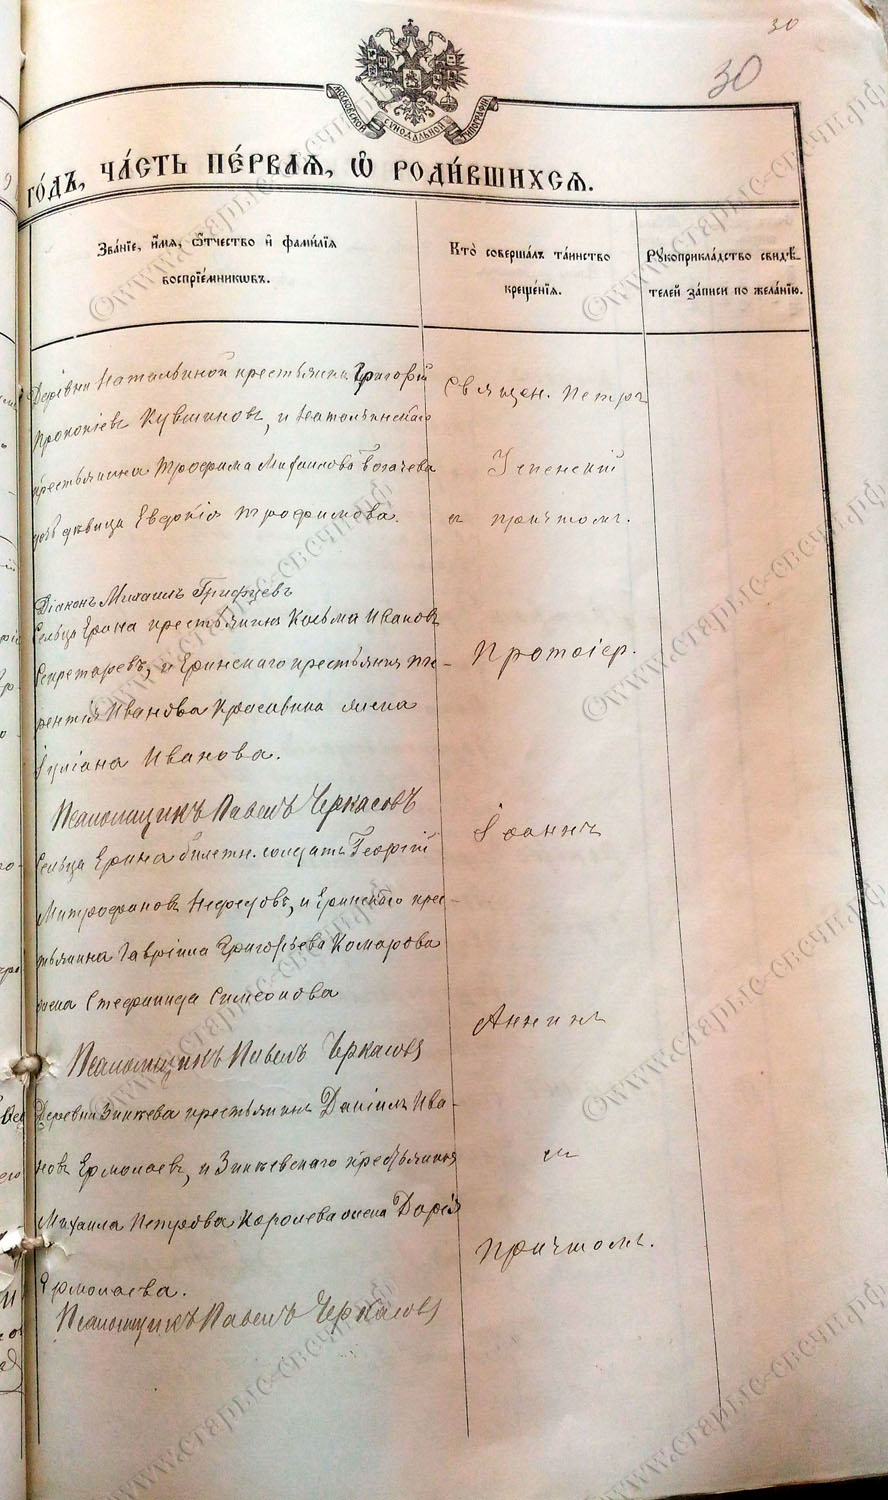 30
30
МОСКОВСКОЙ СУНОДАЛЬНОЙ ТИПОГРАФІИ
го́дъ, ча́сть пе́рваѧ, ѡ҆ роди́вшихсѧ.
Зва́нїе, и҆́мѧ, ѻ҆́тчество и҆ фами́лїѧ
воспрїе́мникѡвъ.
Кто̀ соверша́лъ та́инство
креще́нїѧ.
Рꙋкоприкла́дство свидѣ́-
телей за́писи по жела́нїю.
Деревни Натальиной крестьянинъ Григорій
Прокопіевъ Кувшиновъ, и Натальинскаго
крестьянина Трофима Михаилова Богачева
дочь дѣвица Евдокія Трофимова.
Священ. Петръ
Успенскій
съ причтомъ.
Діаконъ Михаилъ Грифцевъ
Сельца Ерина крестьянинъ Козьма Ивановъ
Секретаревъ, и Еринскаго крестьянина
Иванова Красавина жена
Іуліана Иванова.
Псаломщикъ Павелъ Черкасовъ
Протоіер.
Іоаннъ
Аннинъ
съ
Причтомъ.
Сельца Ерина билетн. солдатъ Георгій
Митрофановъ Нефедовъ, и Еринскаго крес-
тьянина Гавріила Григорьева Комарова
жена Стефанида Симеонова
Псаломщикъ Павелъ Черкасовъ
Деревни Зинкева крестьянинъ Даніилъ Ива-
новъ Ермолаевъ, и Зинкевскаго крестьянина
Михаила Петрова Королева жена Дарія
Ермолаева.
Псаломщикъ Павелъ Черкасовъ
©www.старые-свечи.рф